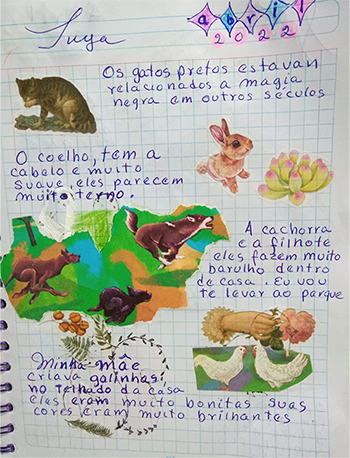 abril
2022
Suya
Os gatos pretos estavan
relacionados a magia
negra em outros séculos
O coelho, tem a
cabelo e muito
suave, eles parecem
muito terno.
A cachorra
e a filhote
eles fazem muito
barulho dentro
de casa. Eu vou
te levar ao parque
Minha mãe
criava galinhas
no telhado da casa
eles eram muito bonitas suas
cores eram muito brilhantes